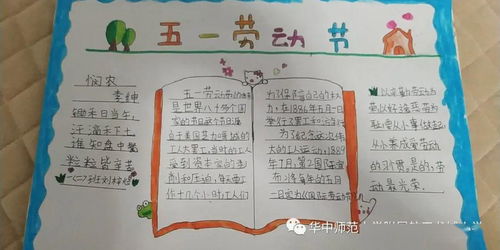 五一劳动节
悯农
李绅
锄禾日当午,
汗滴禾下土
谁知盘中餐
粒粒皆辛苦
五一劳动节的
是世界八十多个国
家的节日这个节日源
自于美国芝加哥城的
工人大罢工,当时的工人
受到资本家的
削和压迫,每天要工
作十几个小时,工人们
为了保障自己的权
力,在1886年5月1日
举行了罢工和
为了纪念这次伟
大的工人运动,1889
年7月,第2国际宣
布将每年的五月
一日定为《国际劳动节》
以辛勤劳动为
荣以好逸恶劳为
耻,从小事做起,
从小养成爱劳动
的习惯,是的,劳
动最光荣.
华中师范